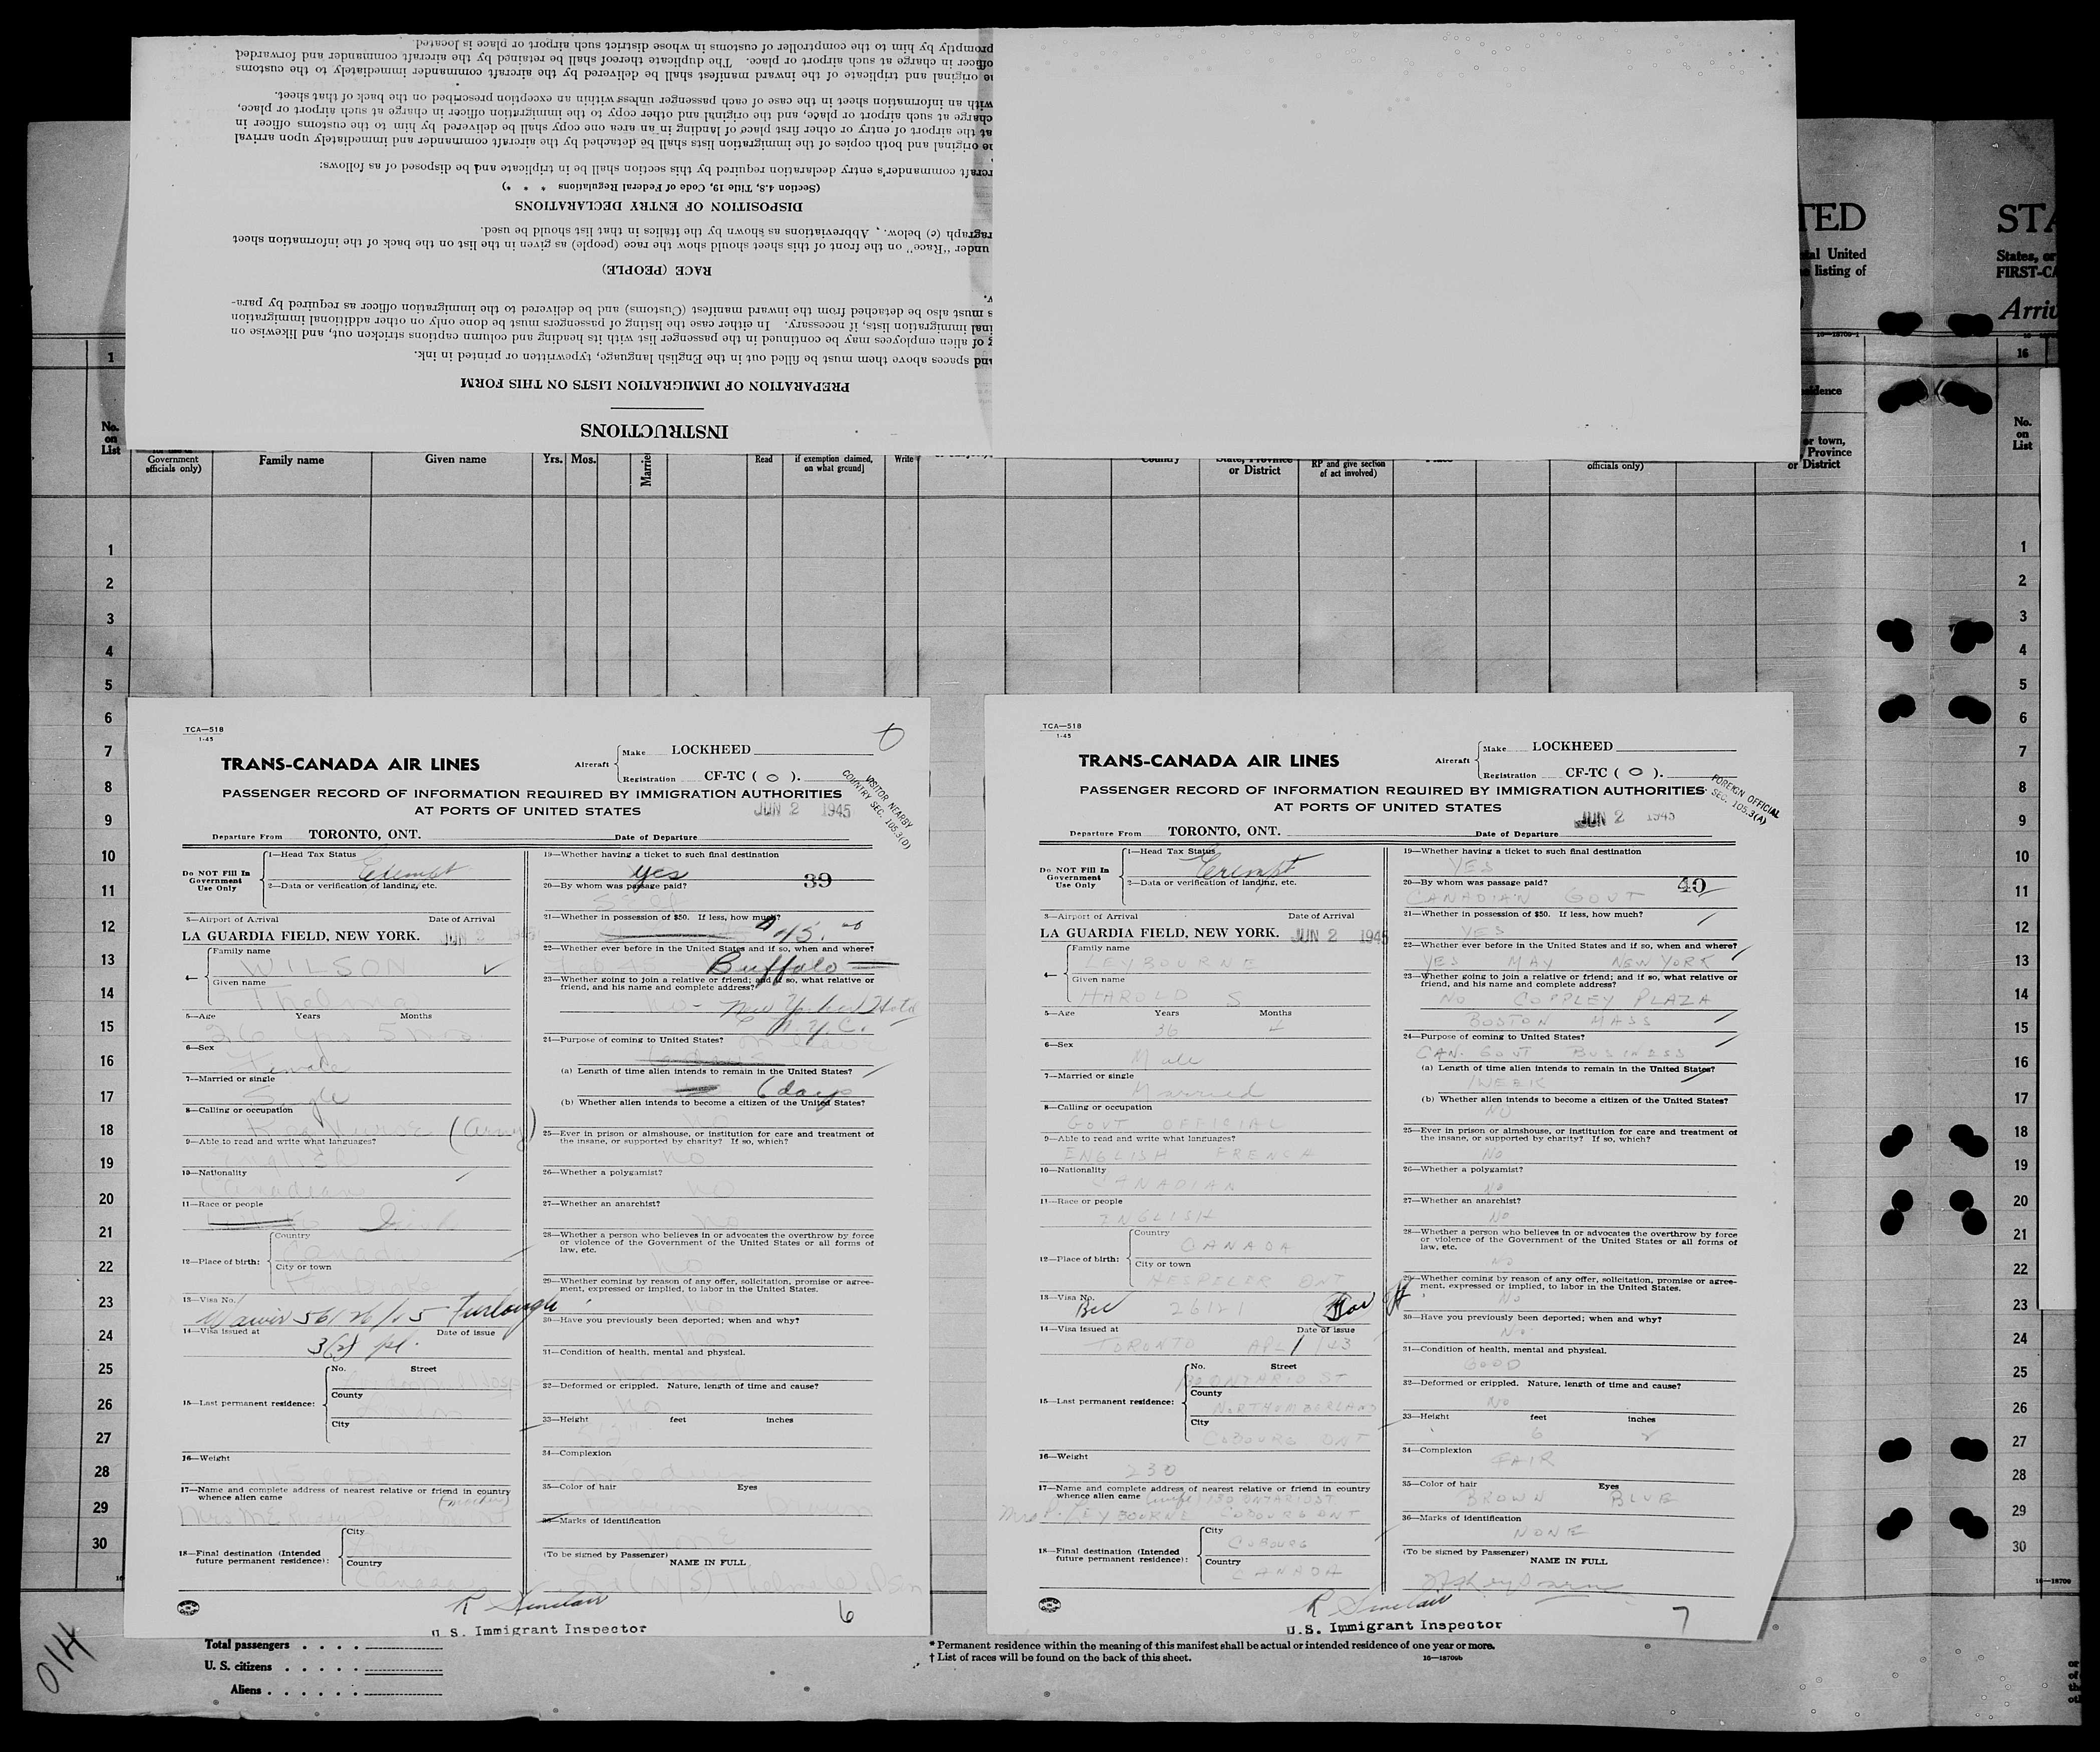 INSTRUCTIONS
PREPARATION OF IMMIGRATION LISTS ON THIS FORM
and spaces above them must be filled out in the English language, typewritten or printed in ink.
g of alien employees may be continued in the passenger list with its heading and column captions stricken out, and likewise on
inal immigration lists, if necessary. In either case the listing of passengers must be done only on other additional immigration
s must also be detached from the inward manifest (Customs) and be delivered to the immigration officer as required by para-
RACE (PEOPLE)
under "Race" on the front of this sheet should show the race (people) as given in the list on the back of the information sheet
ragraph (c) below. Abbreviations as shown by the italics in that list should be used.
DISPOSITION OF ENTRY DECLARATIONS
(Section 4.8, Title 19, Code of Federal Regulations * * *)
rcraft commander's entry declaration required by this section shall be in triplicate and be disposed of as follows:
he original and both copies of the immigration lists shall be detached by the aircraft commander and immediately upon arrival
at the airport of entry or other first place of landing in an area one copy shall be delivered by him to the customs officer in
charge at such airport or place, and the original and other copy to the immigration officer in charge at such airport or place,
with an information sheet in the case of each passenger unless within an exception prescribed on the back of that sheet.
he original and triplicate of the inward manifest shall be delivered by the aircraft commander immediately to the customs
officer in charge at such airport or place. The duplicate thereof shall be retained by the aircraft commander and forwarded
promptly by him to the comptroller of customs in whose district such airport or place is located.
TED STA
al United States, or
listing of FIRST-CA
Arriv
16—18709-1
1 16
No. on List
Government officials only)
Family name Given name Yrs. Mos. Married Read if exemption claimed, on what ground] Write
Country State, Province or District RP and give section of act involved) officials only) or town, Province or District
No. on List
1 1
2 2
3 3
4 4
5 5
6 6
7 7
8 8
9 9
10 10
11 11
12 12
13 13
14 14
15 15
16 16
17 17
18 18
19 19
20 20
21 21
22 22
23 23
24 24
25 25
26 26
27 27
28 28
29 29
30 30
TCA—518
1-45
Aircraft Make LOCKHEED
Registration CF-TC ( O ).
TRANS-CANADA AIR LINES
VISITOR NEARBY
COUNTRY SEC. 105.3(D)
PASSENGER RECORD OF INFORMATION REQUIRED BY IMMIGRATION AUTHORITIES
AT PORTS OF UNITED STATES
JUN 2 1945
Departure From TORONTO, ONT. Date of Departure
Do NOT Fill In Government Use Only
1—Head Tax Status Exempt
2—Data or verification of landing, etc.
3—Airport of Arrival Date of Arrival
LA GUARDIA FIELD, NEW YORK. JUN 2 1945
4— Family name
WILSON
Given name
Thelma
5—Age Years Months
26 yrs 5 mos
6—Sex
Female
7—Married or single
Single
8—Calling or occupation
Reg Nurse (Army)
9—Able to read and write what languages?
English
10—Nationality
Canadian
11—Race or people
Irish
12—Place of birth: Country
Canada
City or town
13—Visa No.
Waiver 561 26/15 Furlough
14—Visa issued at Date of issue
15—Last permanent residence: No. Street
County
City
16—Weight
17—Name and complete address of nearest relative or friend in country whence alien came
(mother)
18—Final destination (Intended future permanent residence): City
Country
Canada
19—Whether having a ticket to such final destination
yes
20—By whom was passage paid? 39
Self
21—Whether in possession of $50. If less, how much?
22—Whether ever before in the United States and if so, when and where?
Buffalo
23—Whether going to join a relative or friend; and if so, what relative or friend, and his name and complete address?
no - New Yorker Hotel
N.Y.C.
24—Purpose of coming to United States?
(a) Length of time alien intends to remain in the United States?
6 days
(b) Whether alien intends to become a citizen of the United States?
25—Ever in prison or almshouse, or institution for care and treatment of the insane, or supported by charity? If so, which?
no
26—Whether a polygamist?
no
27—Whether an anarchist?
no
28—Whether a person who believes in or advocates the overthrow by force or violence of the Government of the United States or all forms of law, etc.
no
29—Whether coming by reason of any offer, solicitation, promise or agreement, expressed or implied, to labor in the United States.
no
30—Have you previously been deported; when and why?
no
31—Condition of health, mental and physical.
32—Deformed or crippled. Nature, length of time and cause?
no
33—Height feet inches
34—Complexion
35—Color of hair Eyes
36—Marks of identification
(To be signed by Passenger) NAME IN FULL
R Sinclair
U.S. Immigrant Inspector
6
TCA—518
1-45
Aircraft Make LOCKHEED
Registration CF-TC ( O ).
TRANS-CANADA AIR LINES
FOREIGN OFFICIAL
SEC. 105.3(A)
PASSENGER RECORD OF INFORMATION REQUIRED BY IMMIGRATION AUTHORITIES
AT PORTS OF UNITED STATES
JUN 2 1945
Departure From TORONTO, ONT. Date of Departure
Do NOT Fill In Government Use Only
1—Head Tax Status Exempt
2—Data or verification of landing, etc.
3—Airport of Arrival Date of Arrival
LA GUARDIA FIELD, NEW YORK. JUN 2 1945
4— Family name
LEYBOURNE
Given name
HAROLD S
5—Age Years Months
36 4
6—Sex
Male
7—Married or single
Married
8—Calling or occupation
GOVT OFFICIAL
9—Able to read and write what languages?
ENGLISH FRENCH
10—Nationality
CANADIAN
11—Race or people
ENGLISH
12—Place of birth: Country
CANADA
City or town
HESPELER ONT
13—Visa No.
Bcc 26121
14—Visa issued at Date of issue
TORONTO APL 1/43
15—Last permanent residence: No. Street
130 ONTARIO ST
County
NORTHUMBERLAND
City
COBOURG ONT
16—Weight
230
17—Name and complete address of nearest relative or friend in country whence alien came (wife) 130 ONTARIO ST
Mrs P. LEYBOURNE COBOURG ONT
18—Final destination (Intended future permanent residence): City
COBOURG
Country
CANADA
19—Whether having a ticket to such final destination
YES
20—By whom was passage paid? 40
CANADIAN GOVT
21—Whether in possession of $50. If less, how much?
YES
22—Whether ever before in the United States and if so, when and where?
YES MAY NEW YORK
23—Whether going to join a relative or friend; and if so, what relative or friend, and his name and complete address?
NO COPPLEY PLAZA
BOSTON MASS
24—Purpose of coming to United States?
CAN. GOVT BUSINESS
(a) Length of time alien intends to remain in the United States?
1 WEEK
(b) Whether alien intends to become a citizen of the United States?
NO
25—Ever in prison or almshouse, or institution for care and treatment of the insane, or supported by charity? If so, which?
NO
26—Whether a polygamist?
NO
27—Whether an anarchist?
NO
28—Whether a person who believes in or advocates the overthrow by force or violence of the Government of the United States or all forms of law, etc.
NO
29—Whether coming by reason of any offer, solicitation, promise or agreement, expressed or implied, to labor in the United States.
NO
30—Have you previously been deported; when and why?
NO
31—Condition of health, mental and physical.
GOOD
32—Deformed or crippled. Nature, length of time and cause?
NO
33—Height feet inches
6 2
34—Complexion
FAIR
35—Color of hair Eyes
BROWN BLUE
36—Marks of identification
NONE
(To be signed by Passenger) NAME IN FULL
R Sinclair
U.S. Immigrant Inspector
7
Total passengers
U. S. citizens
Aliens
* Permanent residence within the meaning of this manifest shall be actual or intended residence of one year or more.
† List of races will be found on the back of this sheet. 16—18709b
16—18709
014